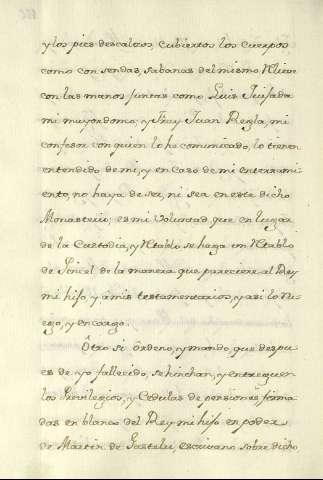 y los pies descalzos, cubiertos los cuerpos
como con sendas sabanas del mismo Relieve
con las manos juntas como Luis Quijada
mi mayordomo, y Fray Juan Regla, mi
confesor con quien lo he comunicado, lo tienen
entendido de mi, y en caso de mi enterrami
ento, no haya de ser, ni sea en este dicho
Monasterio; es mi voluntad, que en lugar
de la Custodia, y Retablo se haga un Retablo
de Pincel de la manera que pareciere al Rey
mi hijo, y a mis testamentarios, y asi lo Ru
ego, y encargo.
Otro si Ordeno, y mando, que despu
es de yo fallecido, se hinchan, y entreguen
los Privilegios, y Cedulas de pensiones firma
das en blanco del Rey mi hijo en poder
de Martin de Gastelu, escrivano sobre dicho